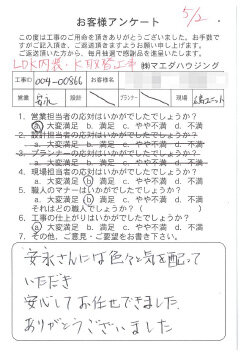 お客様アンケート
5/2
この度は工事のご用命を頂きありがとうございました。お手数で
すがご記入頂き、ご返送頂きますようお願い申し上げます。
ご返送いただいた方から、毎月抽選で感謝品を進呈いたします。
LDK内装・K取替工事 ㈱マエダハウジング
工事ID 004-00966 お客様名
営業 安永 設計 プランナー 現場
1. 営業担当者の応対はいかがでしたでしょうか?
a. 大変満足 b. 満足 c. やや不満 d. 不満
2. 設計担当者の応対はいかがでしたでしょうか?
a. 大変満足 b. 満足 c. やや不満 d. 不満
3. プランナーの応対はいかがでしたでしょうか?
a. 大変満足 b. 満足 c. やや不満 d. 不満
4. 現場担当者の応対はいかがでしたでしょうか?
a. 大変満足 b. 満足 c. やや不満 d. 不満
5. 職人のマナーはいかがでしたでしょうか?
a. 大変満足 b. 満足 c. やや不満 d. 不満
それはどの職人でしょうか? ( )
6. 工事の仕上がりはいかがでしたでしょうか?
a. 大変満足 b. 満足 c. やや不満 d. 不満
7. その他、ご意見・ご要望をお書き下さい。
安永さんには色々と気を配って
いただき
安心してお任せできました
ありがとうございました